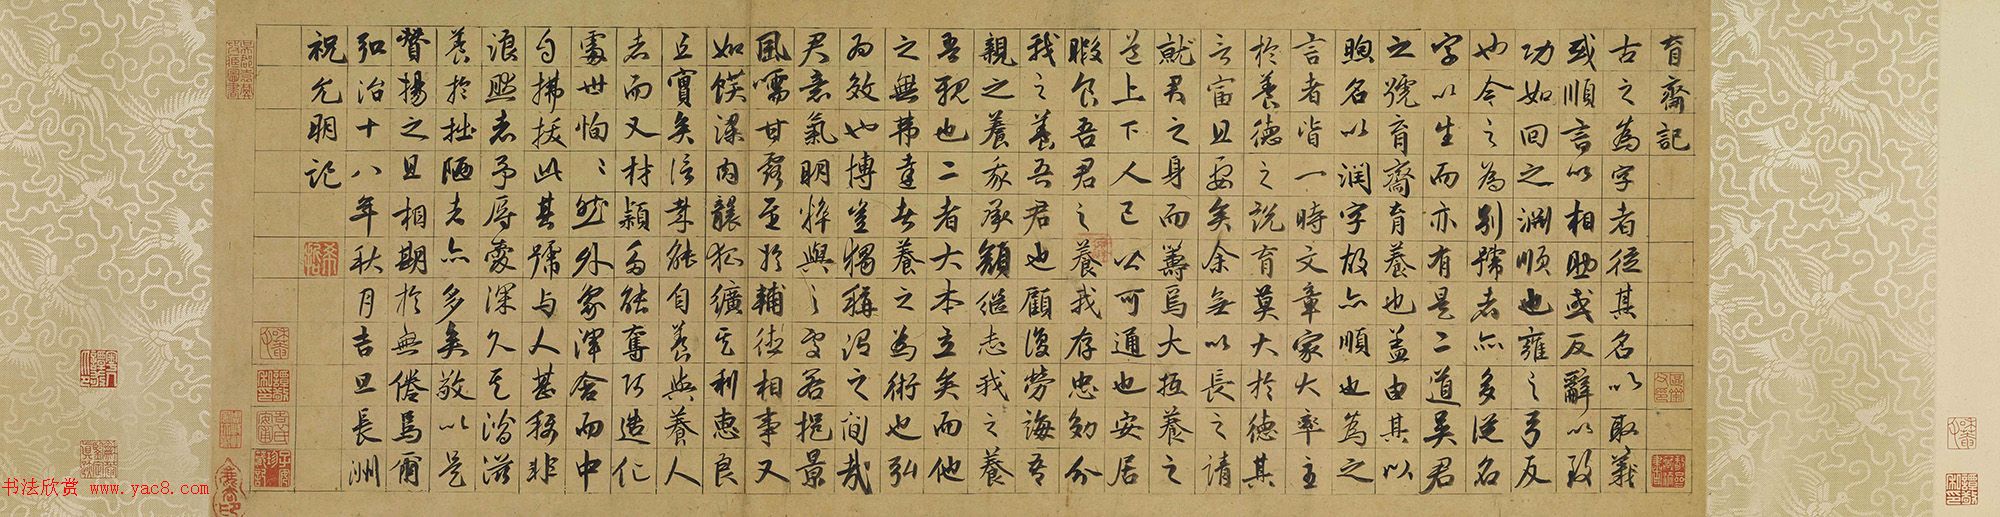 育齋記
古之為字者從其名以取義
或順言以相助或反辭以致
功如回之淵順也雍之弓反
也今之為別號者亦多從名
字以生而亦有是二道吳君
之號育齋育養也蓋由其以
煦名以潤字故亦順也為之
言者皆一時文章家大率主
於養德之說育莫大於德其
言富且要矣余無以長之請
就君之身而籌焉大抵養之
道上下人己公可通也安居
暇食吾君之養我存忠効分
我之養吾君也顧復勞誨吾
親之養我承顏繼志我之養
吾親也二者大本立矣而他
之無韋達於養之為術也弘
為效也博豈獨稱謂之間哉
君意氣明粹與之處若挹景
風嚅甘露至於輔德相事又
如饌濃內釀狐纊之利惠良
且實矣信孝能自養與養人
者而又材穎多能奪巧造化
處世恂〻然外象渾舍而中
自拂拔此其號与人甚稱非
浪然者予辱愛深久之滄滋
養於拙陋者亦多矣敬以是
贊揚之且相期於無倦焉爾
弘治十八年秋月吉旦長洲
祝允明記
书法欣赏 www.yac8.com